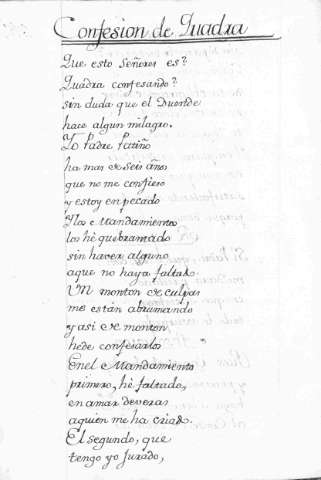 Confesion de Quadra
Que esto Señores es?
Quadra confesando?
sin duda que el Duende
hace algun milagro.
Yo Padre Patiño
ha mas de seis años
que no me confieso
y estoy en pecado
Y los Mandamientos
los hè quebrantado
sin haver alguno
aque no haya faltado.
Un monton de culpas
me están abrumando
y asi de monton
hede confesarlos
Enel Mandamiento
primero, hè faltado,
en amar deveras
aquien me ha criado.
El segundo, que
tengo yo Jurado,